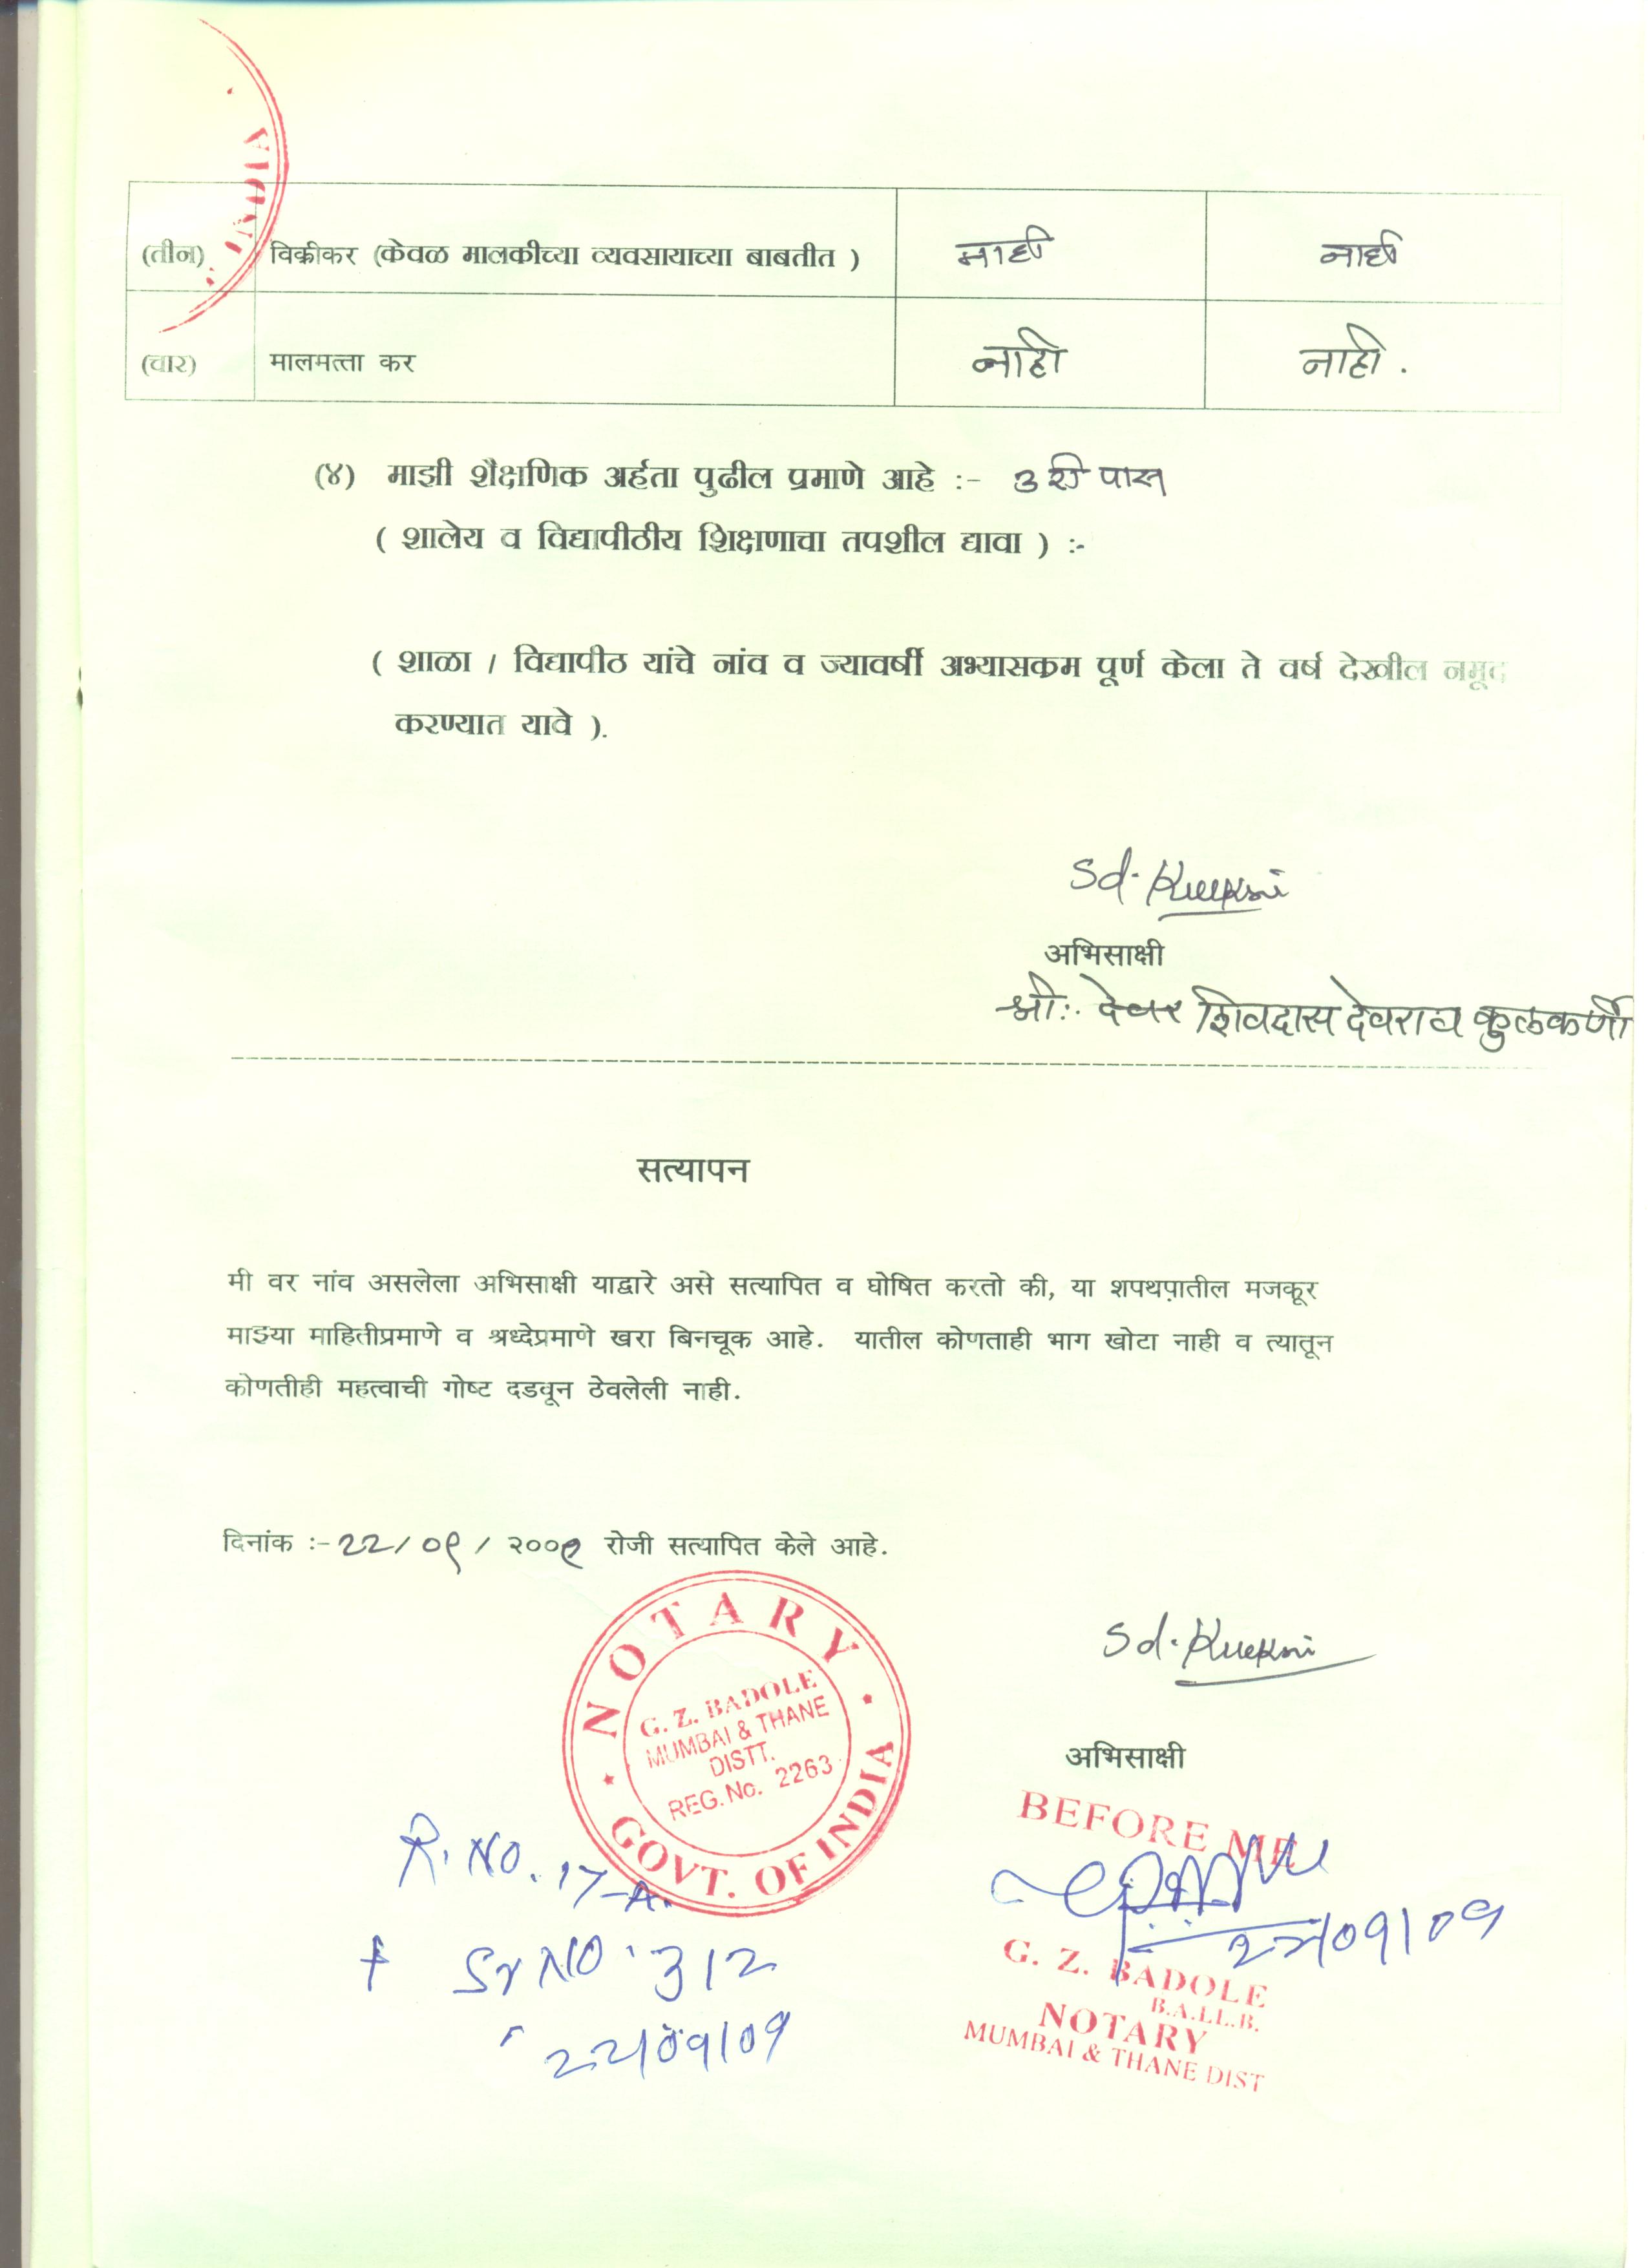 INDIA
(तीन) विक्रीकर (केवळ मालकीच्या व्यवसायाच्या बाबतीत ) नाही नाही
(चार) मालमत्ता कर नाही नाही .
(४) माझी शैक्षणिक अर्हता पुढील प्रमाणे आहे :- 3 री पास
( शालेय व विद्यापीठीय शिक्षणाचा तपशील द्यावा ) :-
( शाळा / विद्यापीठ यांचे नांव व ज्यावर्षी अभ्यासक्रम पूर्ण केला ते वर्ष देखील नमूद
करण्यात यावे ).
Sd-
अभिसाक्षी
श्री. देवर शिवदास देवराव कुळकर्णी
सत्यापन
मी वर नांव असलेला अभिसाक्षी याद्वारे असे सत्यापित व घोषित करतो की, या शपथप़ातील मजकूर
माझ्या माहितीप्रमाणे व श्रध्देप्रमाणे खरा बिनचूक आहे. यातील कोणताही भाग खोटा नाही व त्यातून
कोणतीही महत्वाची गोष्ट दडवून ठेवलेली नाही.
दिनांक :- २२/ ०९ / २००९ रोजी सत्यापित केले आहे.
Sd-
NOTARY
G. Z. BADOLE
MUMBAI & THANE
DISTT.
REG. No. 2263
GOVT. OF INDIA
अभिसाक्षी
BEFORE ME
R. NO. 17-A.
22/09/09
Sr NO. 312
G. Z. BADOLE
B.A.LL.B.
NOTARY
MUMBAI & THANE DIST
22/09/09